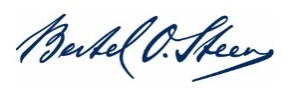 Bertel O. Steen